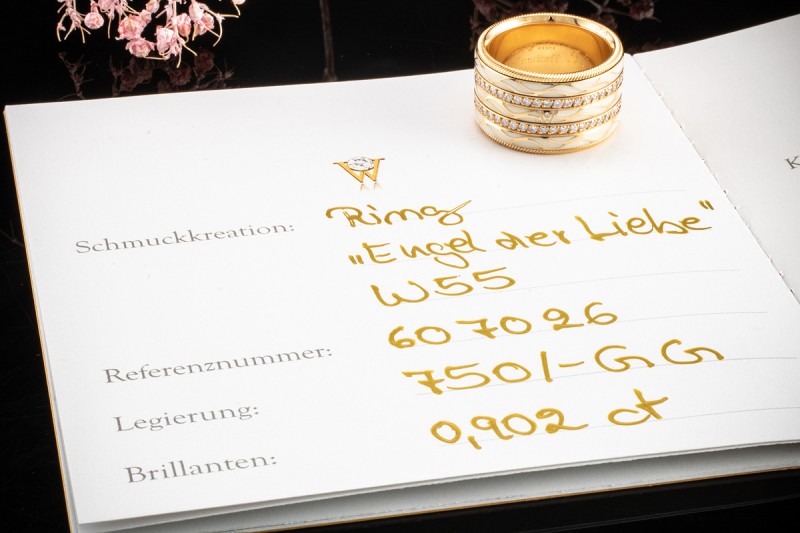 W
Schmuckkreation: Ring
"Engel der Liebe"
W55
Referenznummer: 607026
Legierung: 750/-GG
Brillanten: 0,902 ct
K